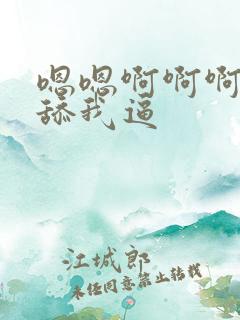 嗯嗯啊啊啊
舔我逼
江城郎
未经同意禁止转载